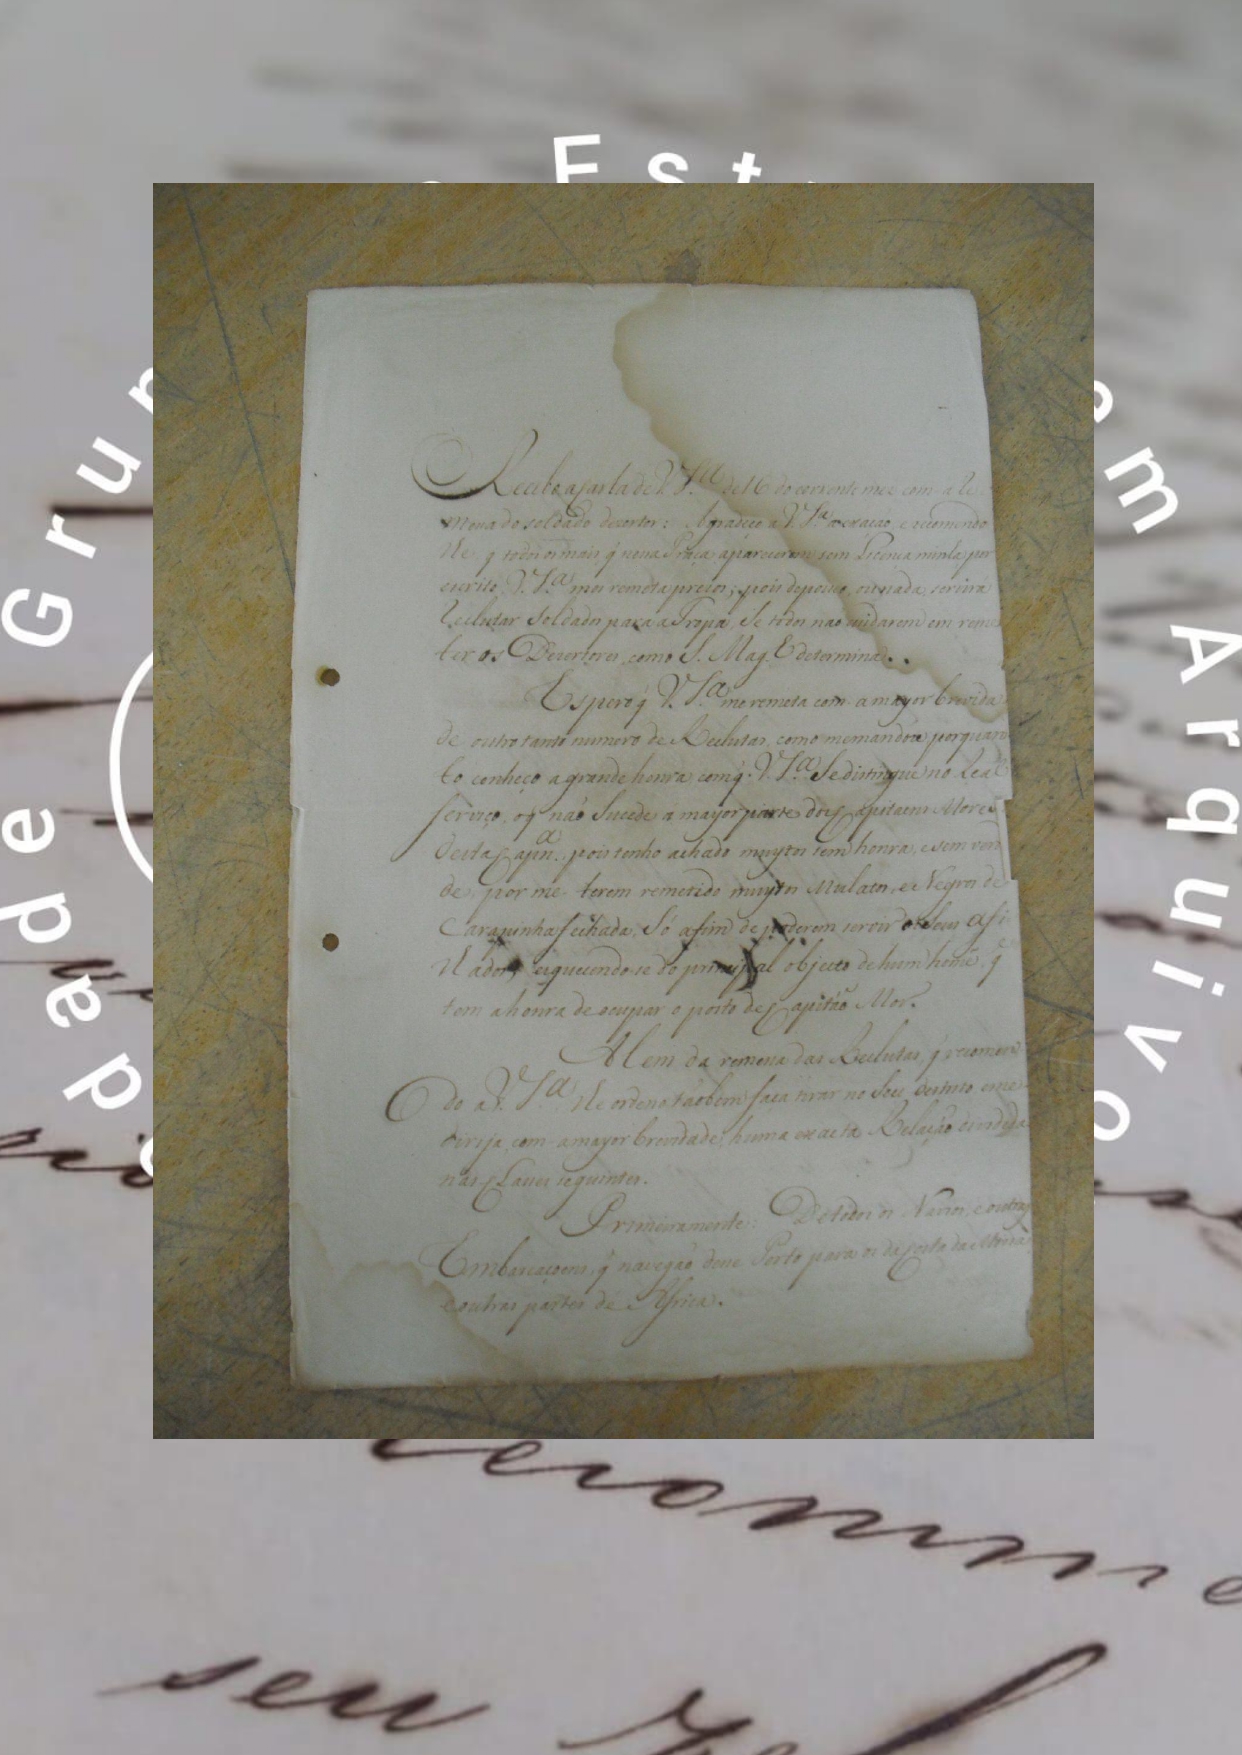 Recibo a Carta de V. S.ª de 16 do corrente mez com a Re
mesa do soldado dezertor: Agradeço a V. S.ª a exação, e recomendo
lhe, q todos os mais q nessa Praça aparecerem sem Licença minha por
escrito, V. S.ª mos remeta prezos; pois de pouco, ou nada servirá
Reclutar Soldados para a Tropa, Se todos não cuidarem em reme
ter os Dezertores, como S. Mag.E determina.
Espero q V. S.ª me remeta com a mayor brevida
de outro tanto numero de Reclutas, como me mandou porquan
to conheço a grande honra com q. V. S.ª Se distingue no Real
serviço, o q não Sucede á mayor parte dos Capitaens Mores
desta Capn.ª, pois tenho achado muytos sem honra, e sem verd
de, por me terem remetido muytos Mulatos, e Negros de
Carapinha fechada, Só a fim de poderem servir os Seus Afi
lhados, esquecendo-se do principal objecto de hum home, q
tem a honra de ocupar o posto de Capitão Mor.
Alem da remessa das Reclutas, q recomen
do a V. S.ª lhe ordeno tãobem faça tirar no Seu destrito, e me
dirija, com a mayor brevidade, huma exacta Relação dividida
nas Clases seguintes.
Primeiramente: De todos os Navios, e outras
Embarcaçoens, q navegão desse Porto para os da Costa da Mina
e outras partes de Africa.
Est
Gru
dade
em
Arquivo
seu